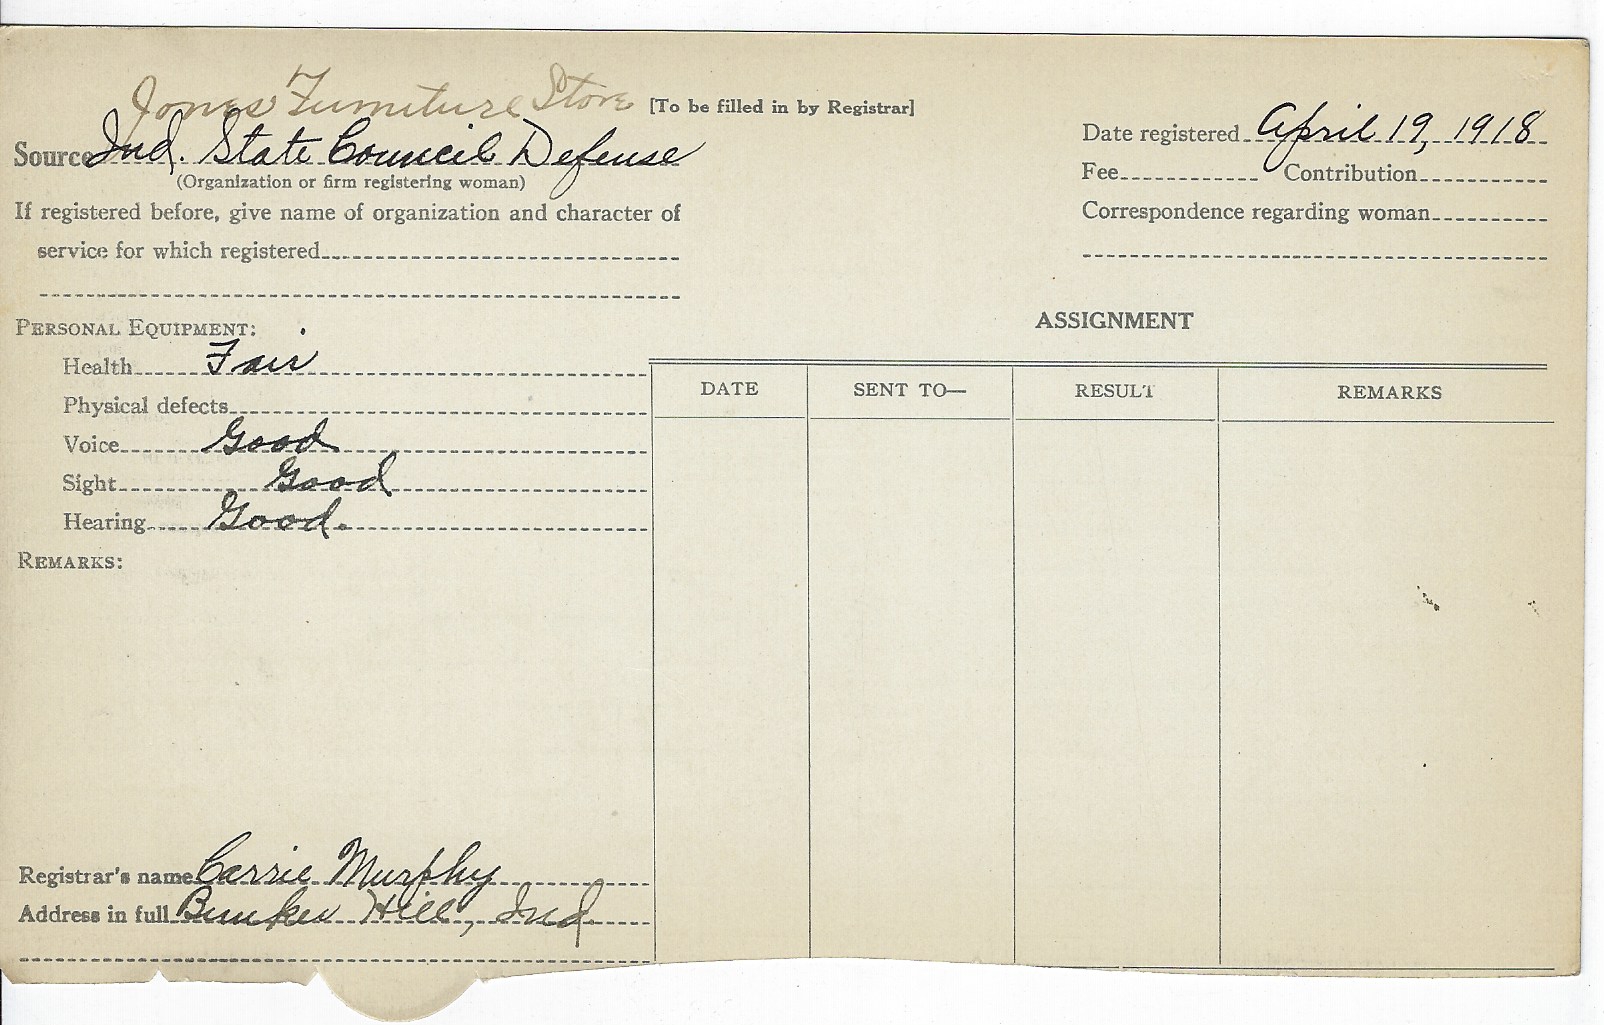 Jones Furniture Store [To be filled in by Registrar]
Source Ind. State Council Defense
(Organization or firm registering woman)
If registered before, give name of organization and character of
service for which registered
Date registered April 19, 1918
Fee Contribution
Correspondence regarding woman
PERSONAL EQUIPMENT:
Health Fair
Physical defects
Voice Good
Sight Good
Hearing Good.
REMARKS:
ASSIGNMENT
DATE SENT TO— RESULT REMARKS
Registrar's name Carrie Murphy
Address in full Bunker Hill, Ind.